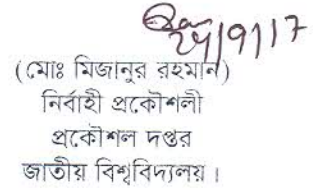 24/9/17
(মোঃ মিজানুর রহমান)
নির্বাহী প্রকৌশলী
প্রকৌশল দপ্তর
জাতীয় বিশ্ববিদ্যালয়।